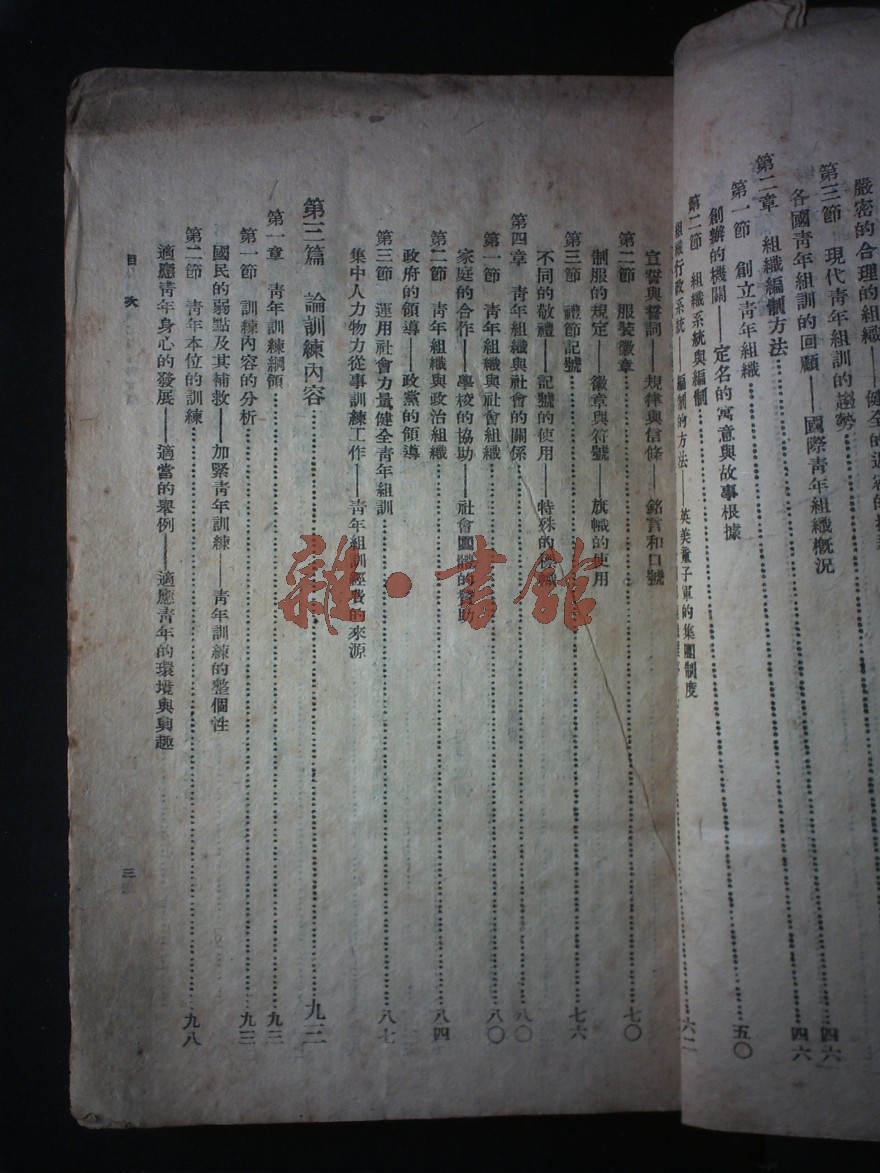 嚴密的合理的組織——健全的
第三節 現代青年組訓的趨勢……四六
各國青年組訓的回顧——國際青年組織概況
第二章 組織編制方法……四六
第一節 創立青年組織……五〇
創辦的機關——定名的寓意與故事根據
第二節 組織系統與編制……六二
組織行政系統——編制的方法——英美童子軍的集團制度
宣誓與誓詞——規律與信條——銘言和口號
第二節 服裝徽章……七〇
制服的規定——徽章與符號——旗幟的使用
第三節 禮節記號……七六
不同的敬禮——記號的使用——特殊的
第四章 青年組織與社會的關係……八〇
第一節 青年組織與社會組織……八〇
家庭的合作——學校的協助——社會團體的贊助
第二節 青年組織與政治組織……八四
政府的領導——政黨的領導
第三節 運用社會力量健全青年組訓……八七
集中人力物力從事訓練工作——青年組訓經費的來源
第三篇 論訓練內容……九三
第一章 青年訓練綱領……九三
第一節 訓練內容的分析……九三
國民的弱點及其補救——加緊青年訓練——青年訓練的整個性
第二節 青年本位的訓練……九八
適應青年身心的發展——適當的舉例——適應青年的環境與興趣
目次
三
雜·書館